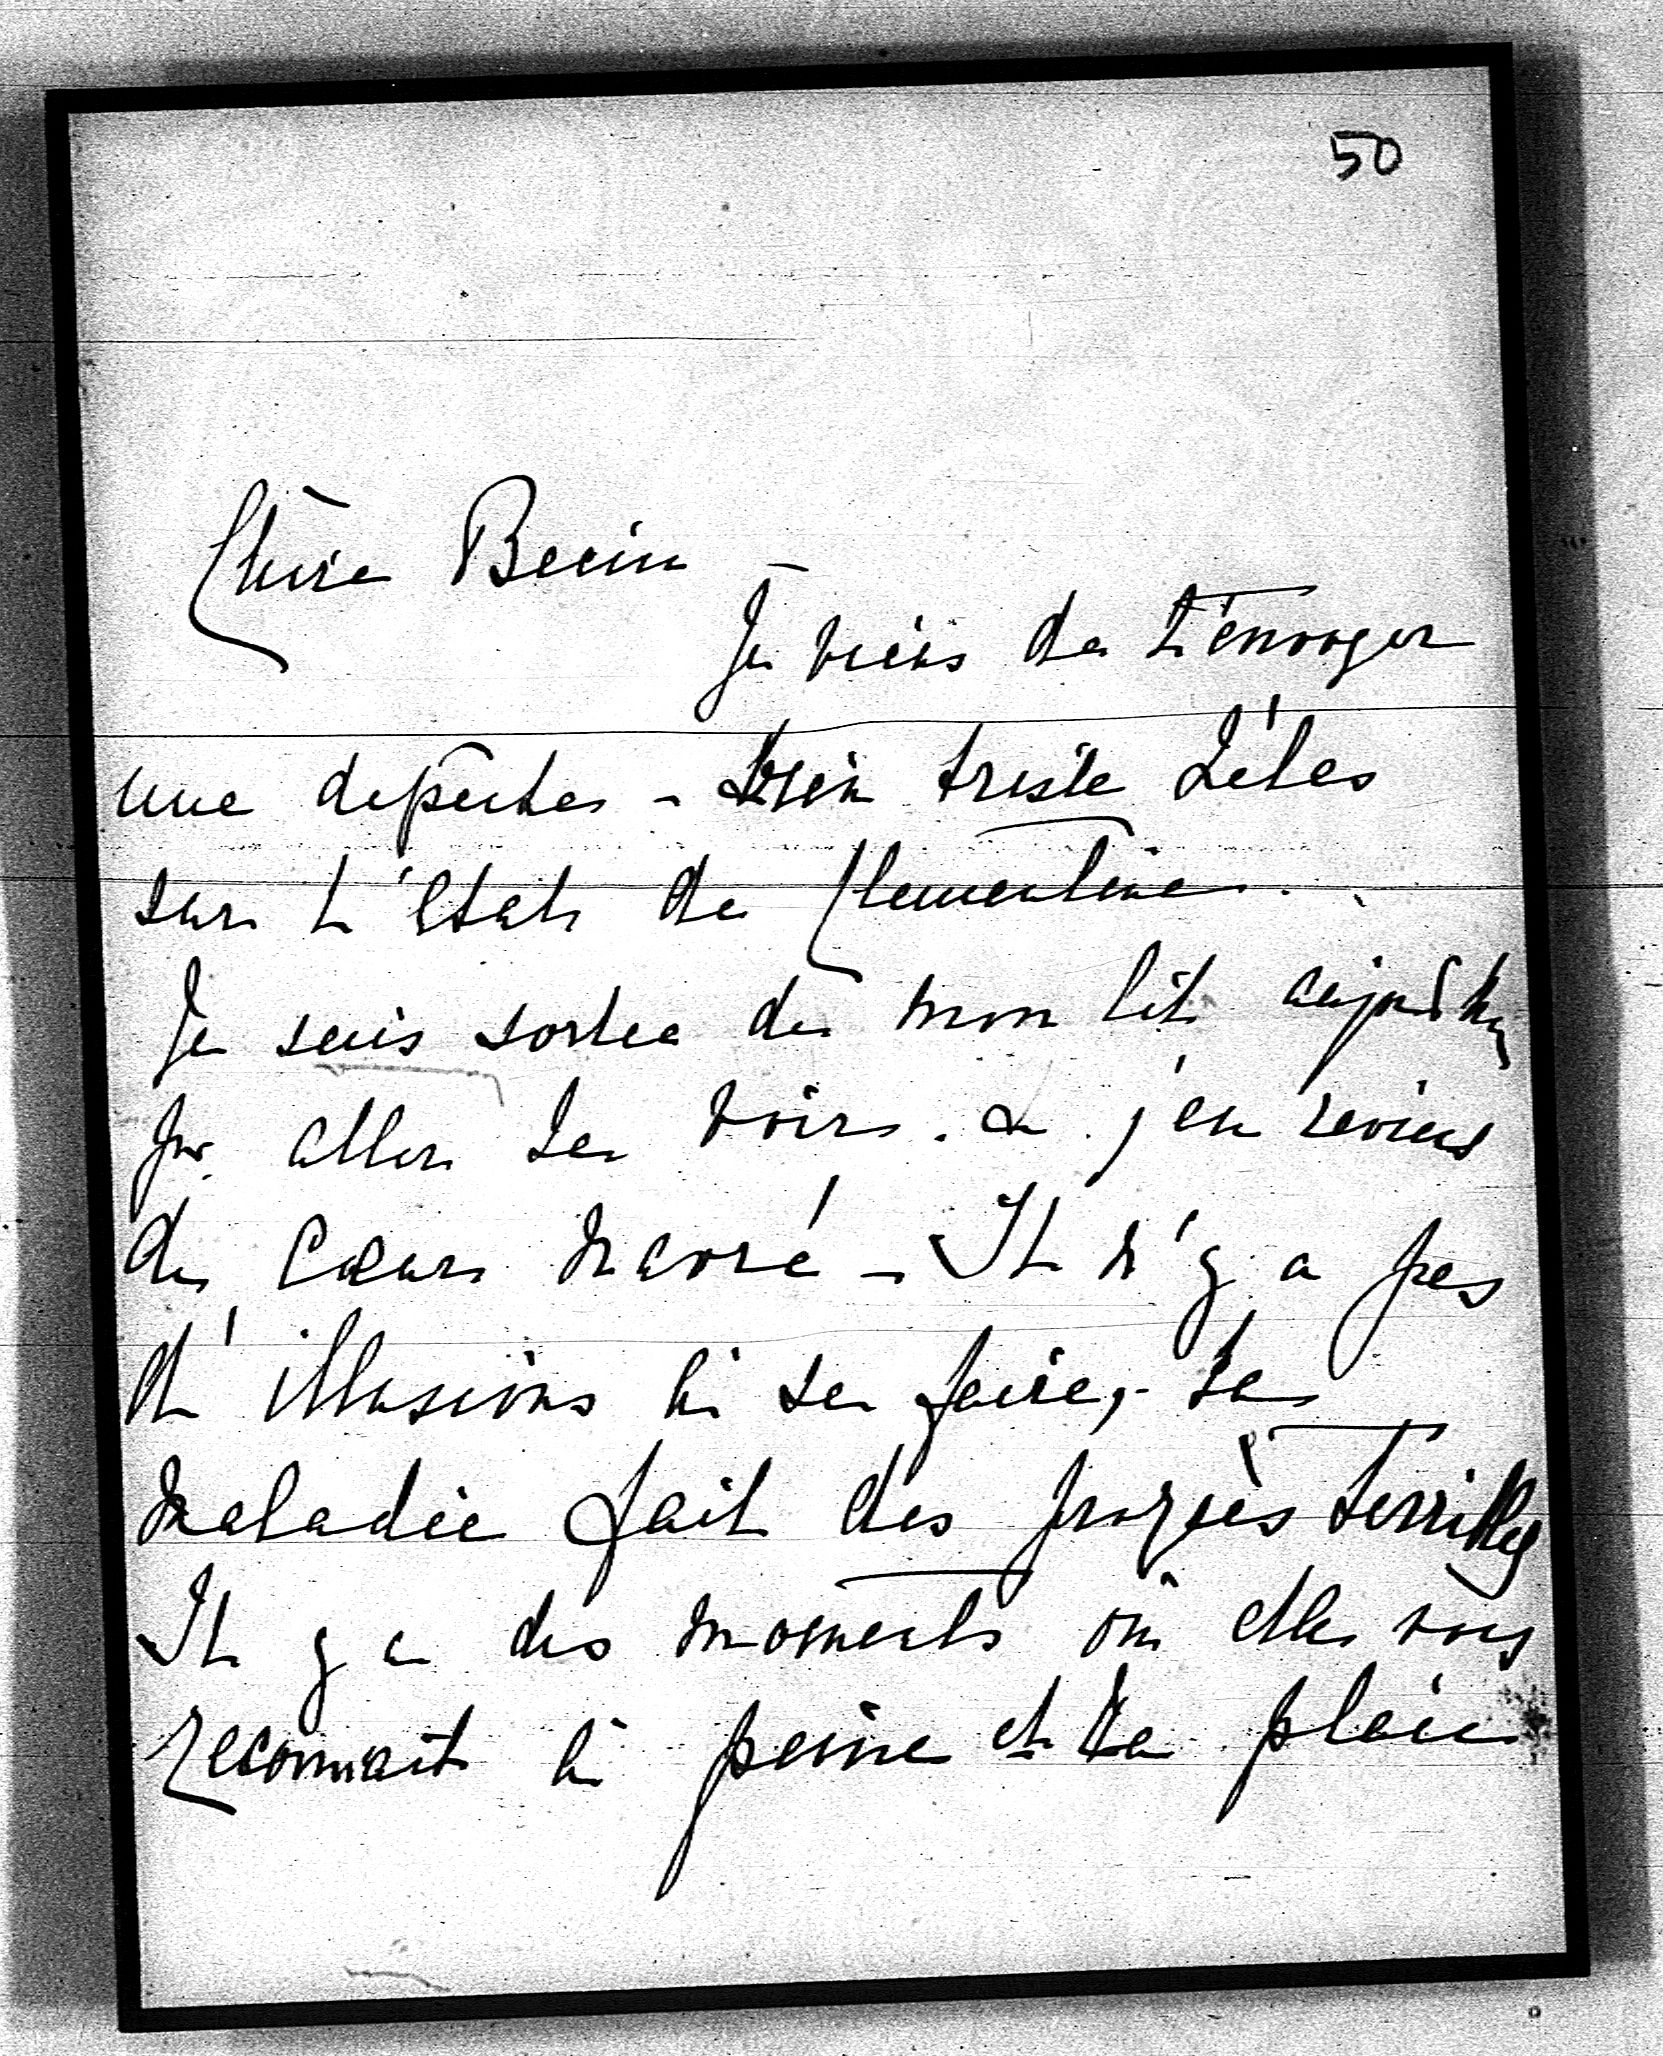 50
Chère Becin -
Je viens de t'envoyer
une depêche - bien triste hélas
sur l'état de Clementine.
Je suis sortie de mon lit aujourd'hui
pr aller la voir. & j'en reviens
le cœur navré - Il n'y a pas
d'illusions à se faire, - la
maladie fait des progrès terribles
Il y a des moments où elle vous
reconnait à peine et la plaie